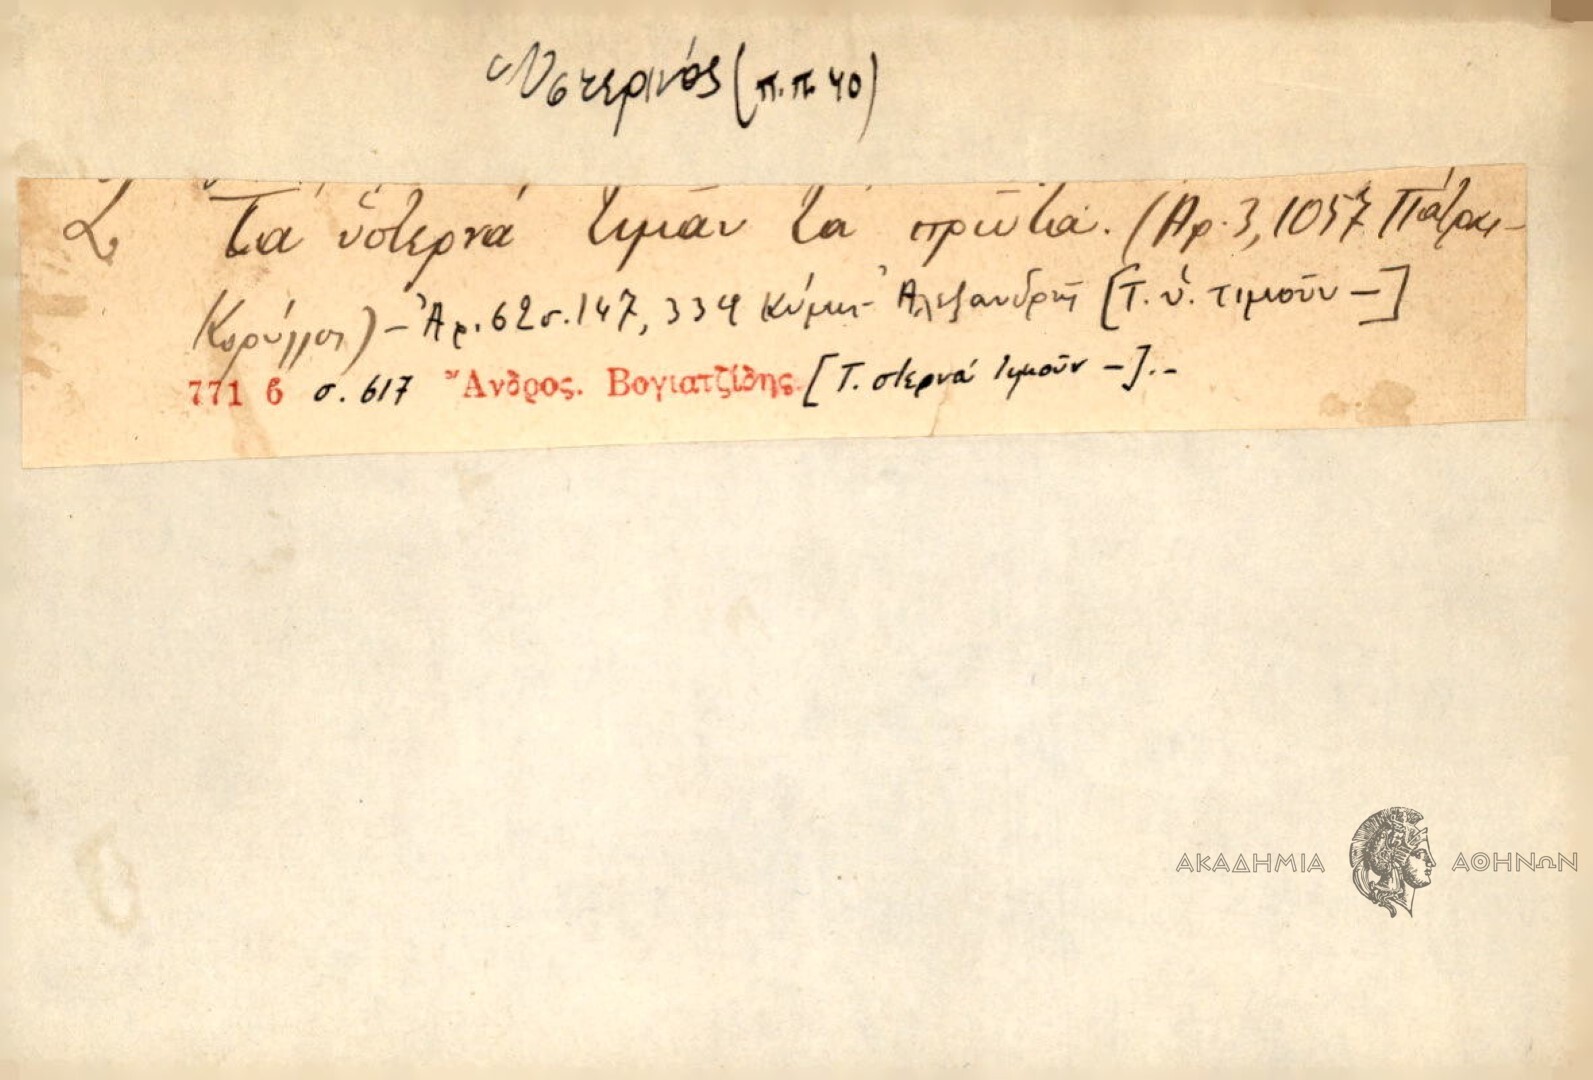 Ὑστερινός (π.π. 40)
2 Τὰ ὑστερνά τιμᾶν τὰ πρῶτα. (Ἀρ. 3, 1057 Πάτραι-
Κορύλλος) – Ἀρ. 62 σ. 147, 334 Κύμη – Ἀλεξανδρῆ [Τ. ὑ. τιμοῦν –]
771 6 σ. 617 Ἄνδρος. Βογιατζίδης [Τ. στερνά τιμοῦν –]. –
ΑΚΑΔΗΜΙΑ ΑΘΗΝΩΝ